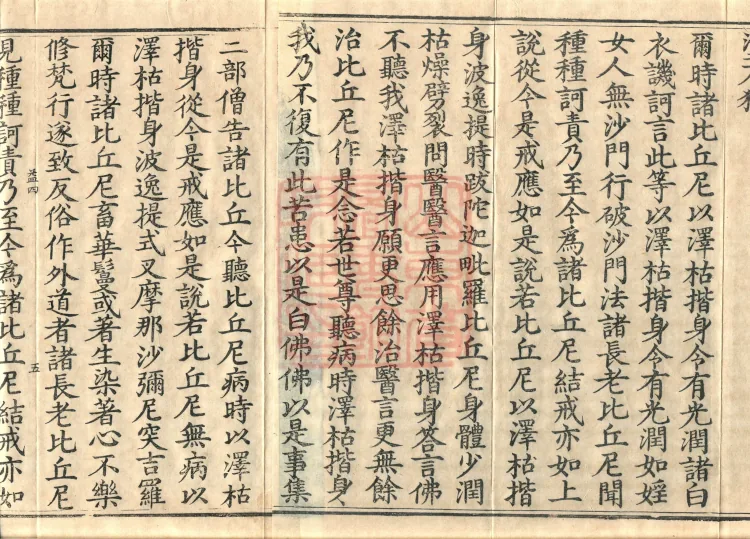 爾時諸比丘尼以澤枯揩身令有光潤諸白
衣譏訶言此等以澤枯揩身令有光潤如婬
女人無沙門行破沙門法諸長老比丘尼聞
種種訶責乃至今爲諸比丘尼結戒亦如上
說從今是戒應如是說若比丘尼以澤枯揩
身波逸提時跋陀迦毗羅比丘尼身體少潤
枯燥劈裂問醫醫言應用澤枯揩身答言佛
不聽我澤枯揩身願更思餘治醫言更無餘
治比丘尼作是念若世尊聽病時澤枯揩身
我乃不復有此苦患以是白佛佛以是事集
二部僧告諸比丘今聽比丘尼病時以澤枯
揩身從今是戒應如是說若比丘尼無病以
澤枯揩身波逸提式叉摩那沙彌尼突吉羅
爾時諸比丘尼畜華鬘或著生染著心不樂
修梵行遂致反俗作外道者諸長老比丘尼
益四 五
見種種訶責乃至今爲諸比丘尼結戒亦如